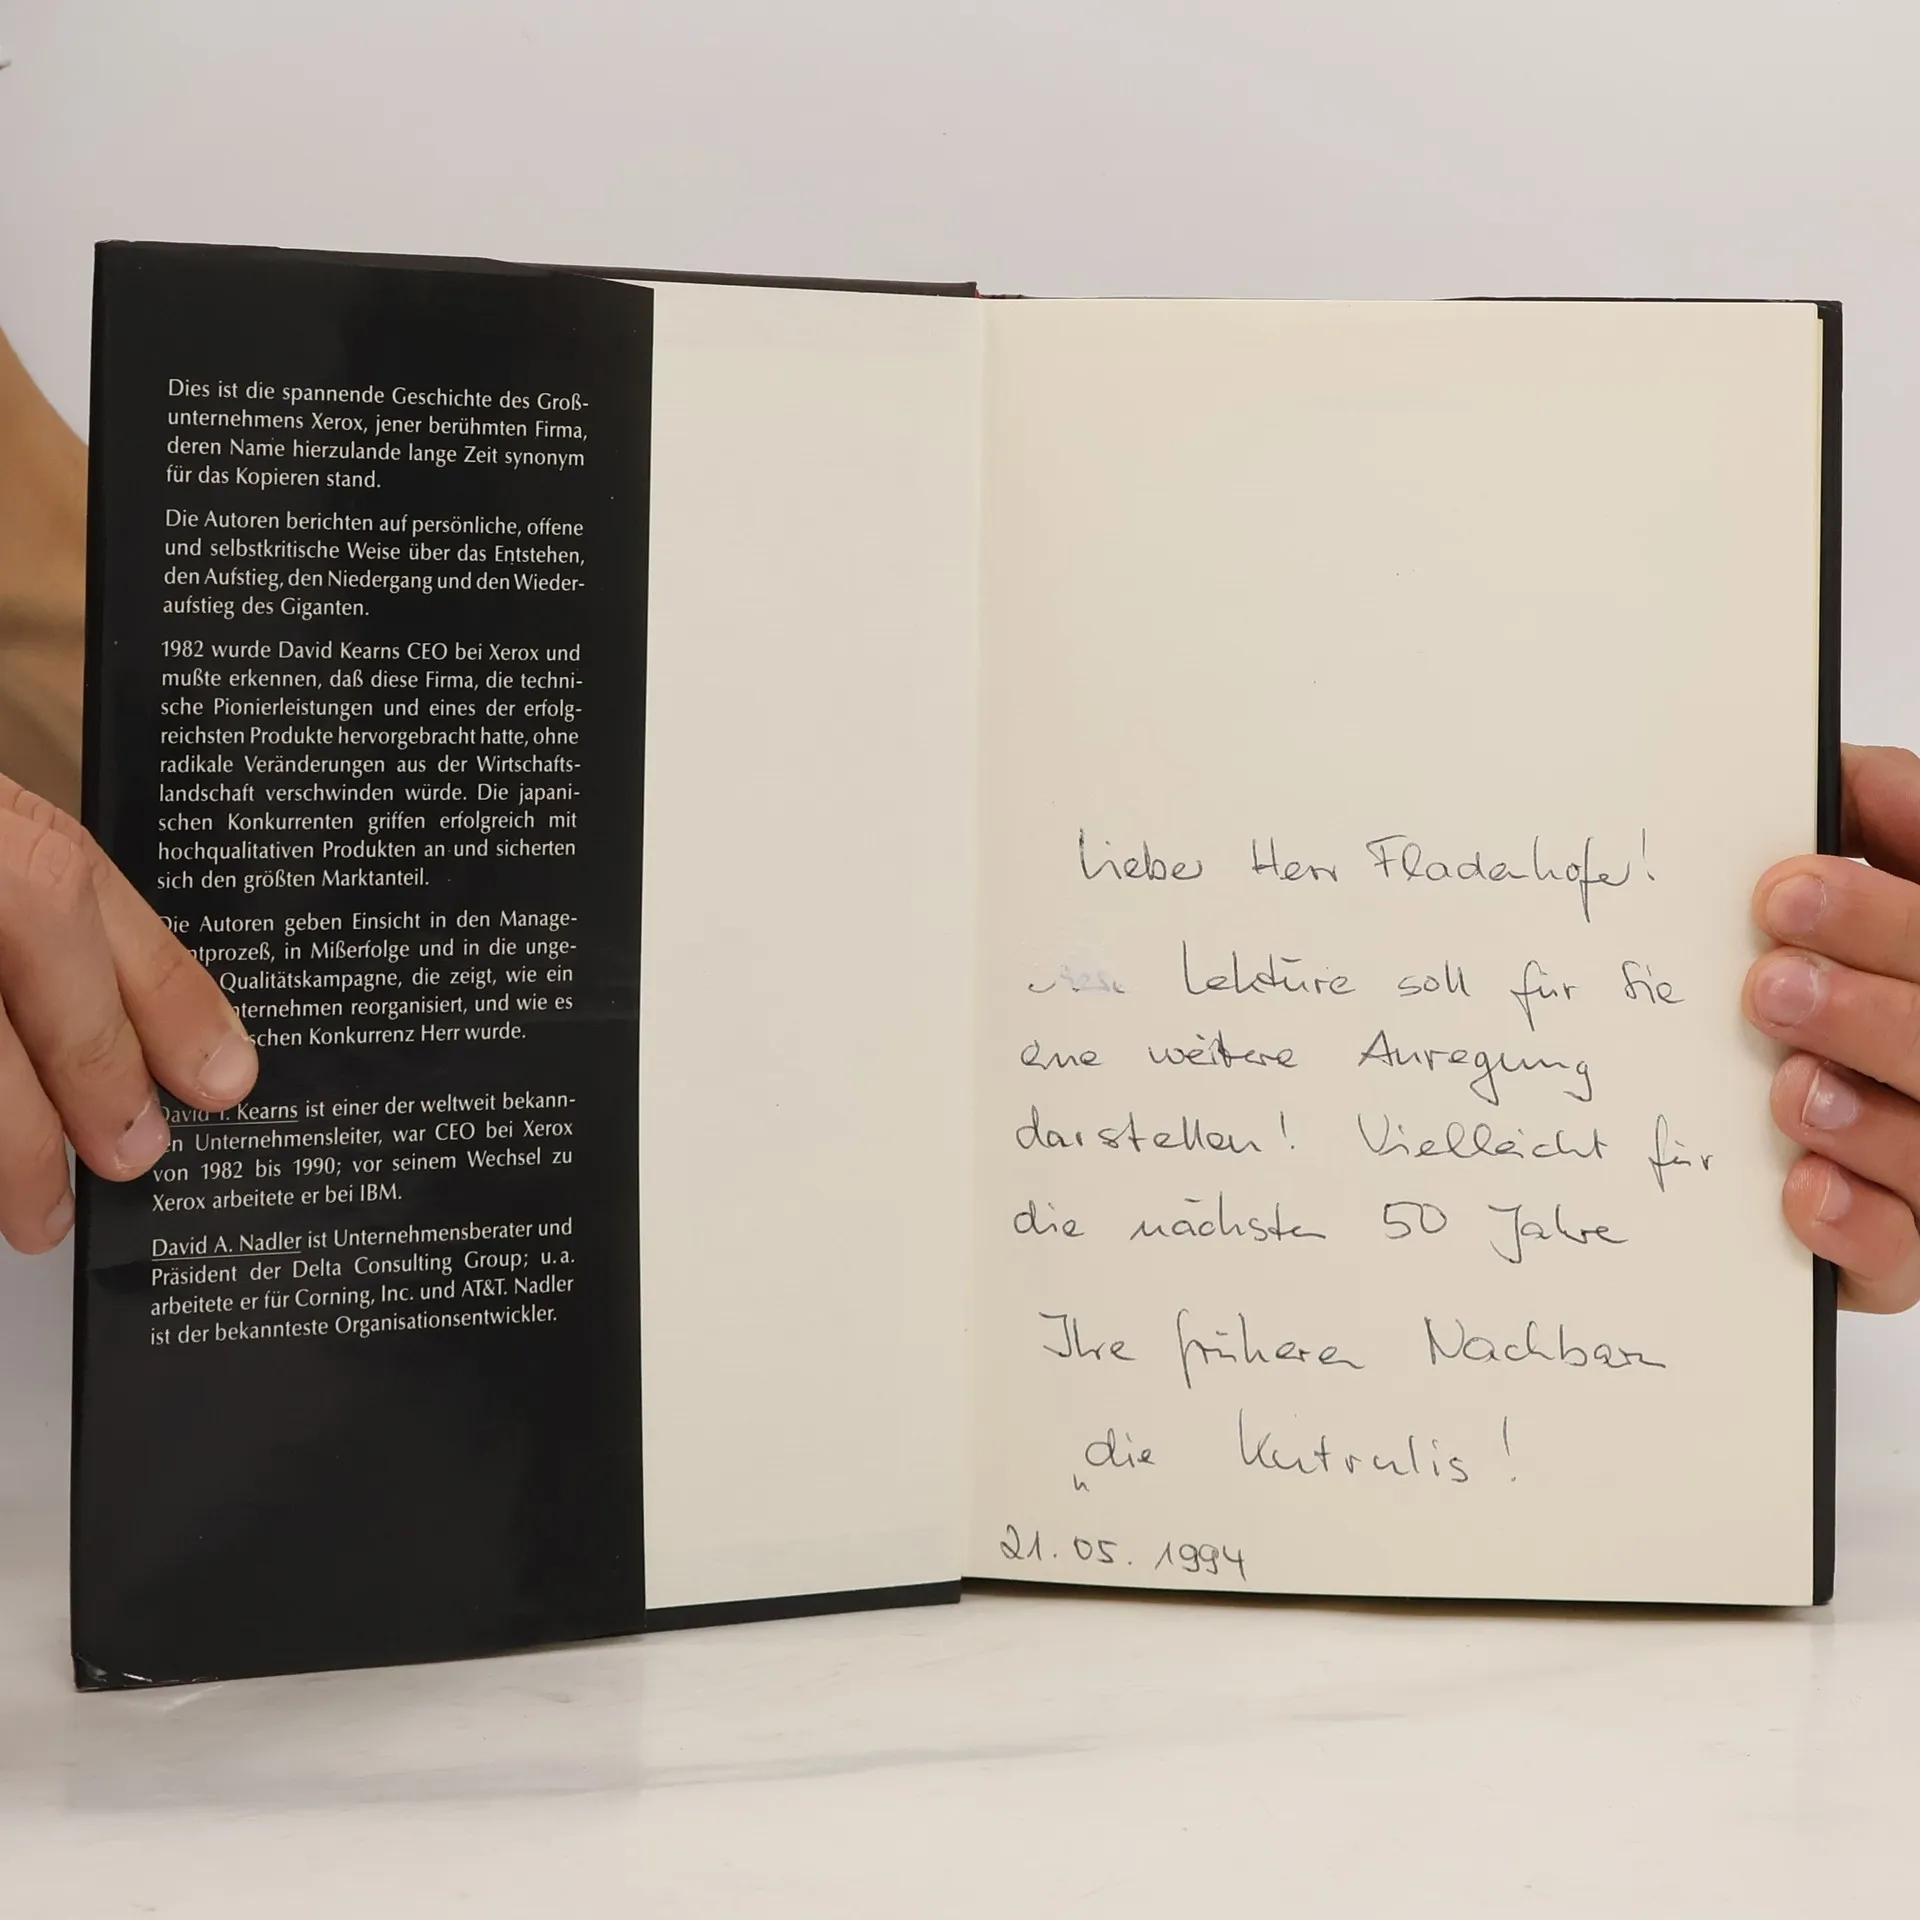 Dies ist die spannende Geschichte des Groß-
unternehmens Xerox, jener berühmten Firma,
deren Name hierzulande lange Zeit synonym
für das Kopieren stand.
Die Autoren berichten auf persönliche, offene
und selbstkritische Weise über das Entstehen,
den Aufstieg, den Niedergang und den Wieder-
aufstieg des Giganten.
1982 wurde David Kearns CEO bei Xerox und
mußte erkennen, daß diese Firma, die techni-
sche Pionierleistungen und eines der erfolg-
reichsten Produkte hervorgebracht hatte, ohne
radikale Veränderungen aus der Wirtschafts-
landschaft verschwinden würde. Die japani-
schen Konkurrenten griffen erfolgreich mit
hochqualitativen Produkten an und sicherten
sich den größten Marktanteil.
Die Autoren geben Einsicht in den Manage-
ntprozeß, in Mißerfolge und in die unge-
Qualitätskampagne, die zeigt, wie ein
nternehmen reorganisiert, und wie es
schen Konkurrenz Herr wurde.
David T. Kearns ist einer der weltweit bekann-
en Unternehmensleiter, war CEO bei Xerox
von 1982 bis 1990; vor seinem Wechsel zu
Xerox arbeitete er bei IBM.
David A. Nadler ist Unternehmensberater und
Präsident der Delta Consulting Group; u.a.
arbeitete er für Corning, Inc. und AT&T. Nadler
ist der bekannteste Organisationsentwickler.
Lieber Herr Fladenhofer!
Lektüre soll für Sie
eine weitere Anregung
darstellen! Vielleicht für
die nächsten 50 Jahre
Ihre früheren Nachbarn
die !
21.05.1994